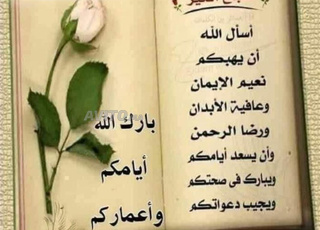 أسأل الله
أن يهبكم
نعيم الإيمان
وعافية الأبدان
ورضا الرحمن
وأن يسعد أيامكم
ويبارك فى صحتكم
ويجيب دعواتكم
بارك الله
أيامكم
وأعماركم